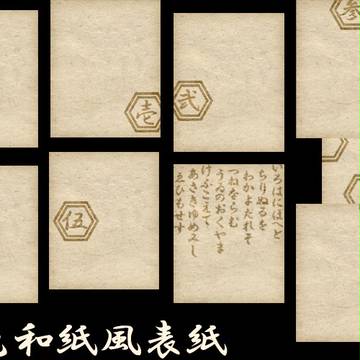 壱
弐
参
伍
いろはにほへど
ちりぬるを
わかよたれそ
つねならむ
うゐのおくやま
けふこえて
あさきゆめみし
ゑひもせす
和紙風表紙